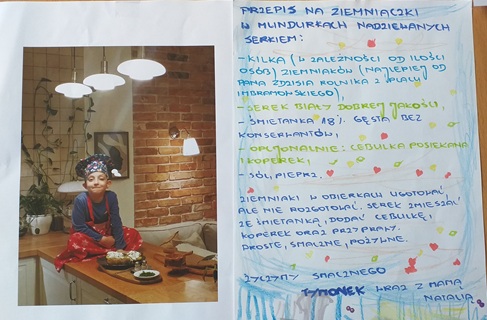 PRZEPIS NA ZIEMNIACZKI
W MUNDURKACH NADZIEWANYCH
SERKIEM:
- KILKA (W ZALEŻNOŚCI OD ILOŚCI
OSÓB) ZIEMNIAKÓW (NAJLEPIEJ OD
PANA ZDZISIA ROLNIKA Z PLACU
IMBRAMOWSKIEGO),
- SEREK BIAŁY DOBREJ JAKOŚCI,
- ŚMIETANKA 18% GĘSTA BEZ
KONSERWANTÓW,
- OPCJONALNIE: CEBULKA POSIEKANA
I KOPEREK,
- SÓL, PIEPRZ.
ZIEMNIAKI W OBIERKACH UGOTOWAĆ,
ALE NIE ROZGOTOWAĆ. SEREK ZMIESZAĆ
ZE ŚMIETANKĄ, DODAĆ CEBULKĘ,
KOPEREK ORAZ PRZYPRAWY.
PROSTE, SMACZNE, POŻYWNE.
ŻYCZYMY SMACZNEGO
TYMONEK WRAZ Z MAMĄ
NATALIĄ